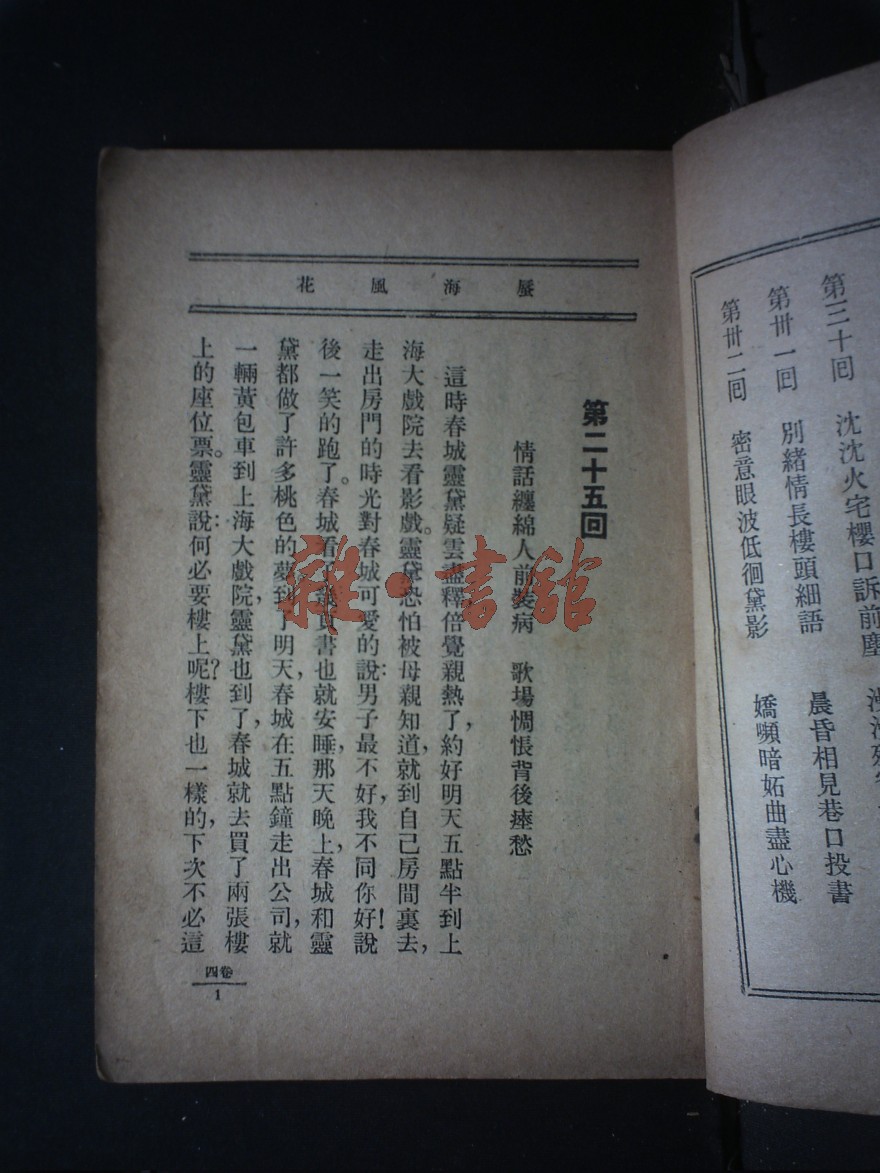 第三十回 沈沈火宅櫻口訴前塵
第卅一回 別緒情長樓頭細語 晨昏相見巷口投書
第卅二回 密意眼波低徊黛影 嬌嚬暗妬曲盡心機
蜃海風花
第二十五回
情話纏綿人前裝病 歌場惆悵背後瘞愁
這時春城靈黛疑雲盡釋倍覺親熱了,約好明天五點半到上
海大戲院去看影戲。靈黛恐怕被母親知道,就到自己房間裏去,
走出房門的時光對春城可愛的說:男子最不好,我不同你好!說
後一笑的跑了。春城看了幾頁書也就安睡,那天晚上,春城和靈
黛都做了許多桃色的夢到了明天,春城在五點鐘走出公司,就
一輛黃包車到上海大戲院,靈黛也到了,春城就去買了兩張樓
上的座位票。靈黛說:何必要樓上呢?樓下也一樣的,下次不必這
卷四
1
雜·書館